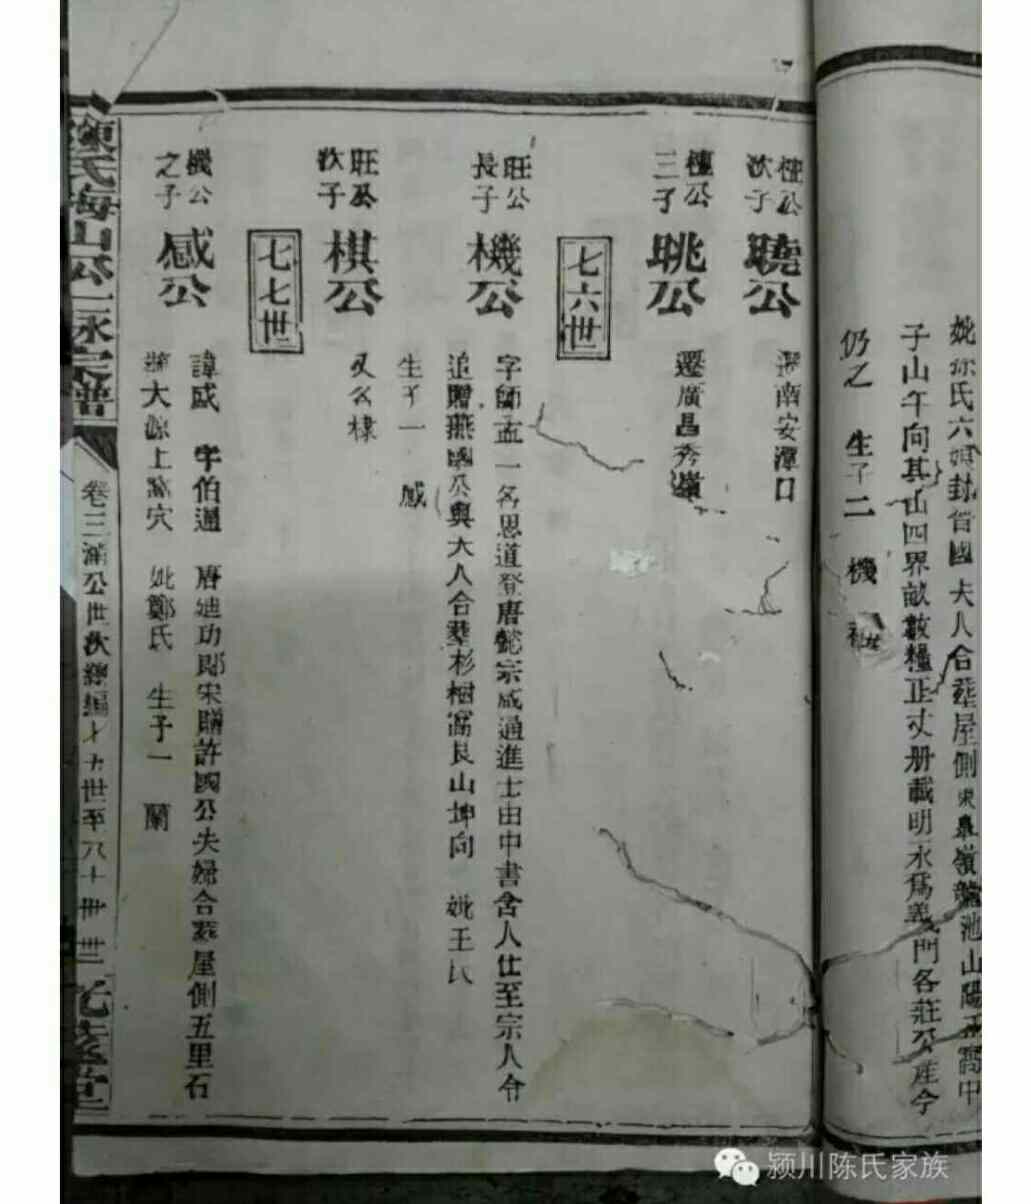 妣孫氏六娘封晉國夫人合葬屋側東臯嶺龍池山陽正窩中
子山午向其山四界畝數糧正丈册載明永爲義門各莊公產今
仍之 生子二 機
檀公次子 曉公 遷南安潭口
檀公三子 眺公 遷廣昌秀嶺
七六世
旺公長子 機公 字師孟一名思道登唐懿宗咸通進士由中書舍人仕至宗人令
追贈燕國公與夫人合葬杉樹窩艮山坤向 妣王氏
生子一 感
旺公次子 棋公 又名棣
七七世
機公之子 感公 諱感 字伯通 唐廸功郎宋贈許國公夫婦合葬屋側五里石
大源上 穴 妣鄭氏 生子一 蘭
陳氏海山公 脉宗譜 卷三 公世次總編 七十世至八十世
颍川陈氏家族